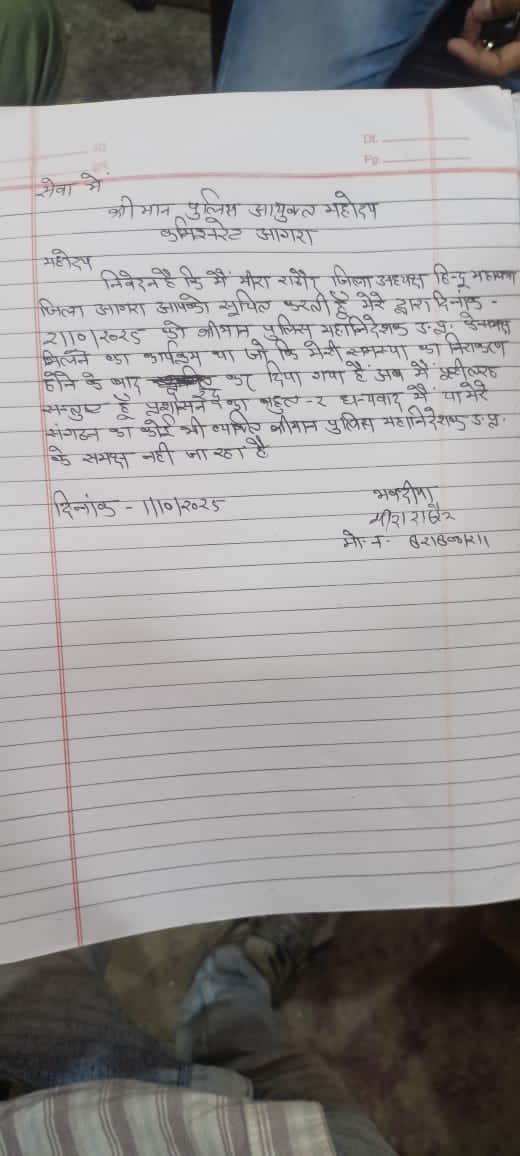 Dt.
Pg.
सेवा में
श्रीमान पुलिस आयुक्त महोदय
कमिश्नरेट आगरा
महोदय
निवेदन है कि मैं मीरा राठौर जिला अध्यक्ष हिन्दू महासभा
जिला आगरा आपको सूचित करती हूँ मेरे द्वारा दिनांक -
2/10/2025 को श्रीमान पुलिस महानिदेशक उ.प्र. के समक्ष
मिलने का कार्यक्रम था जो कि मेरी समस्या का निराकरण
होने के बाद रद्द कर दिया गया है अब मैं पूरी तरह
सन्तुष्ट हूँ प्रशासन का बहुत-2 धन्यवाद मैं या मेरे
संगठन का कोई भी व्यक्ति श्रीमान पुलिस महानिदेशक उ.प्र.
के समक्ष नही जा रहा है
दिनांक - 1/10/2025
भवदीया
मीरा राठौर
मो. न.